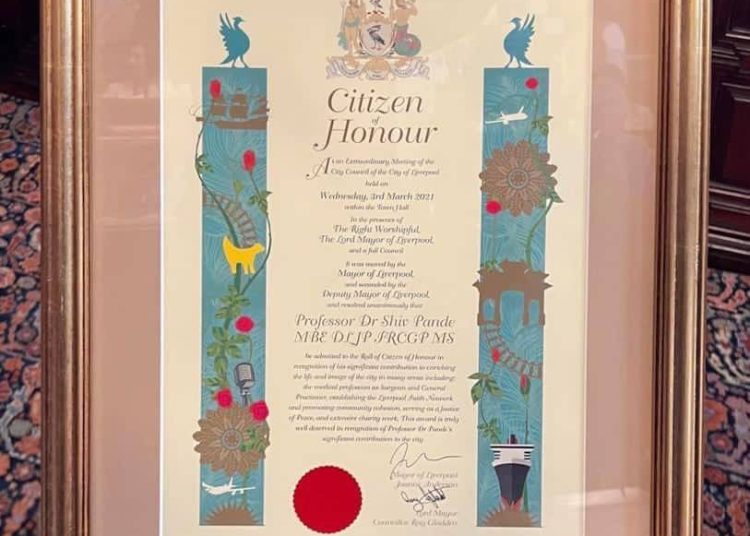 Citizen
of
Honour
At an Extraordinary Meeting of the
City Council of the City of Liverpool
held on
Wednesday, 3rd March 2021
within the Town Hall
In the presence of
The Right Worshipful,
The Lord Mayor of Liverpool,
and a full Council
It was moved by the
Mayor of Liverpool,
and seconded by the
Deputy Mayor of Liverpool,
and resolved unanimously that
Professor Dr Shiv Pande
MBE DL JP FRCGP MS
be admitted to the Roll of Citizen of Honour in
recognition of his significant contribution to enriching
the life and image of the city in many areas including:
the medical profession as Surgeon and General
Practitioner, establishing the Liverpool Faith Network
and promoting community cohesion, serving as a Justice
of Peace, and extensive charity work. This award is truly
well deserved in recognition of Professor Dr Pande's
significant contribution to the city.
Mayor of Liverpool
Joanne Anderson
Lord Mayor
Councillor Roy Gladden